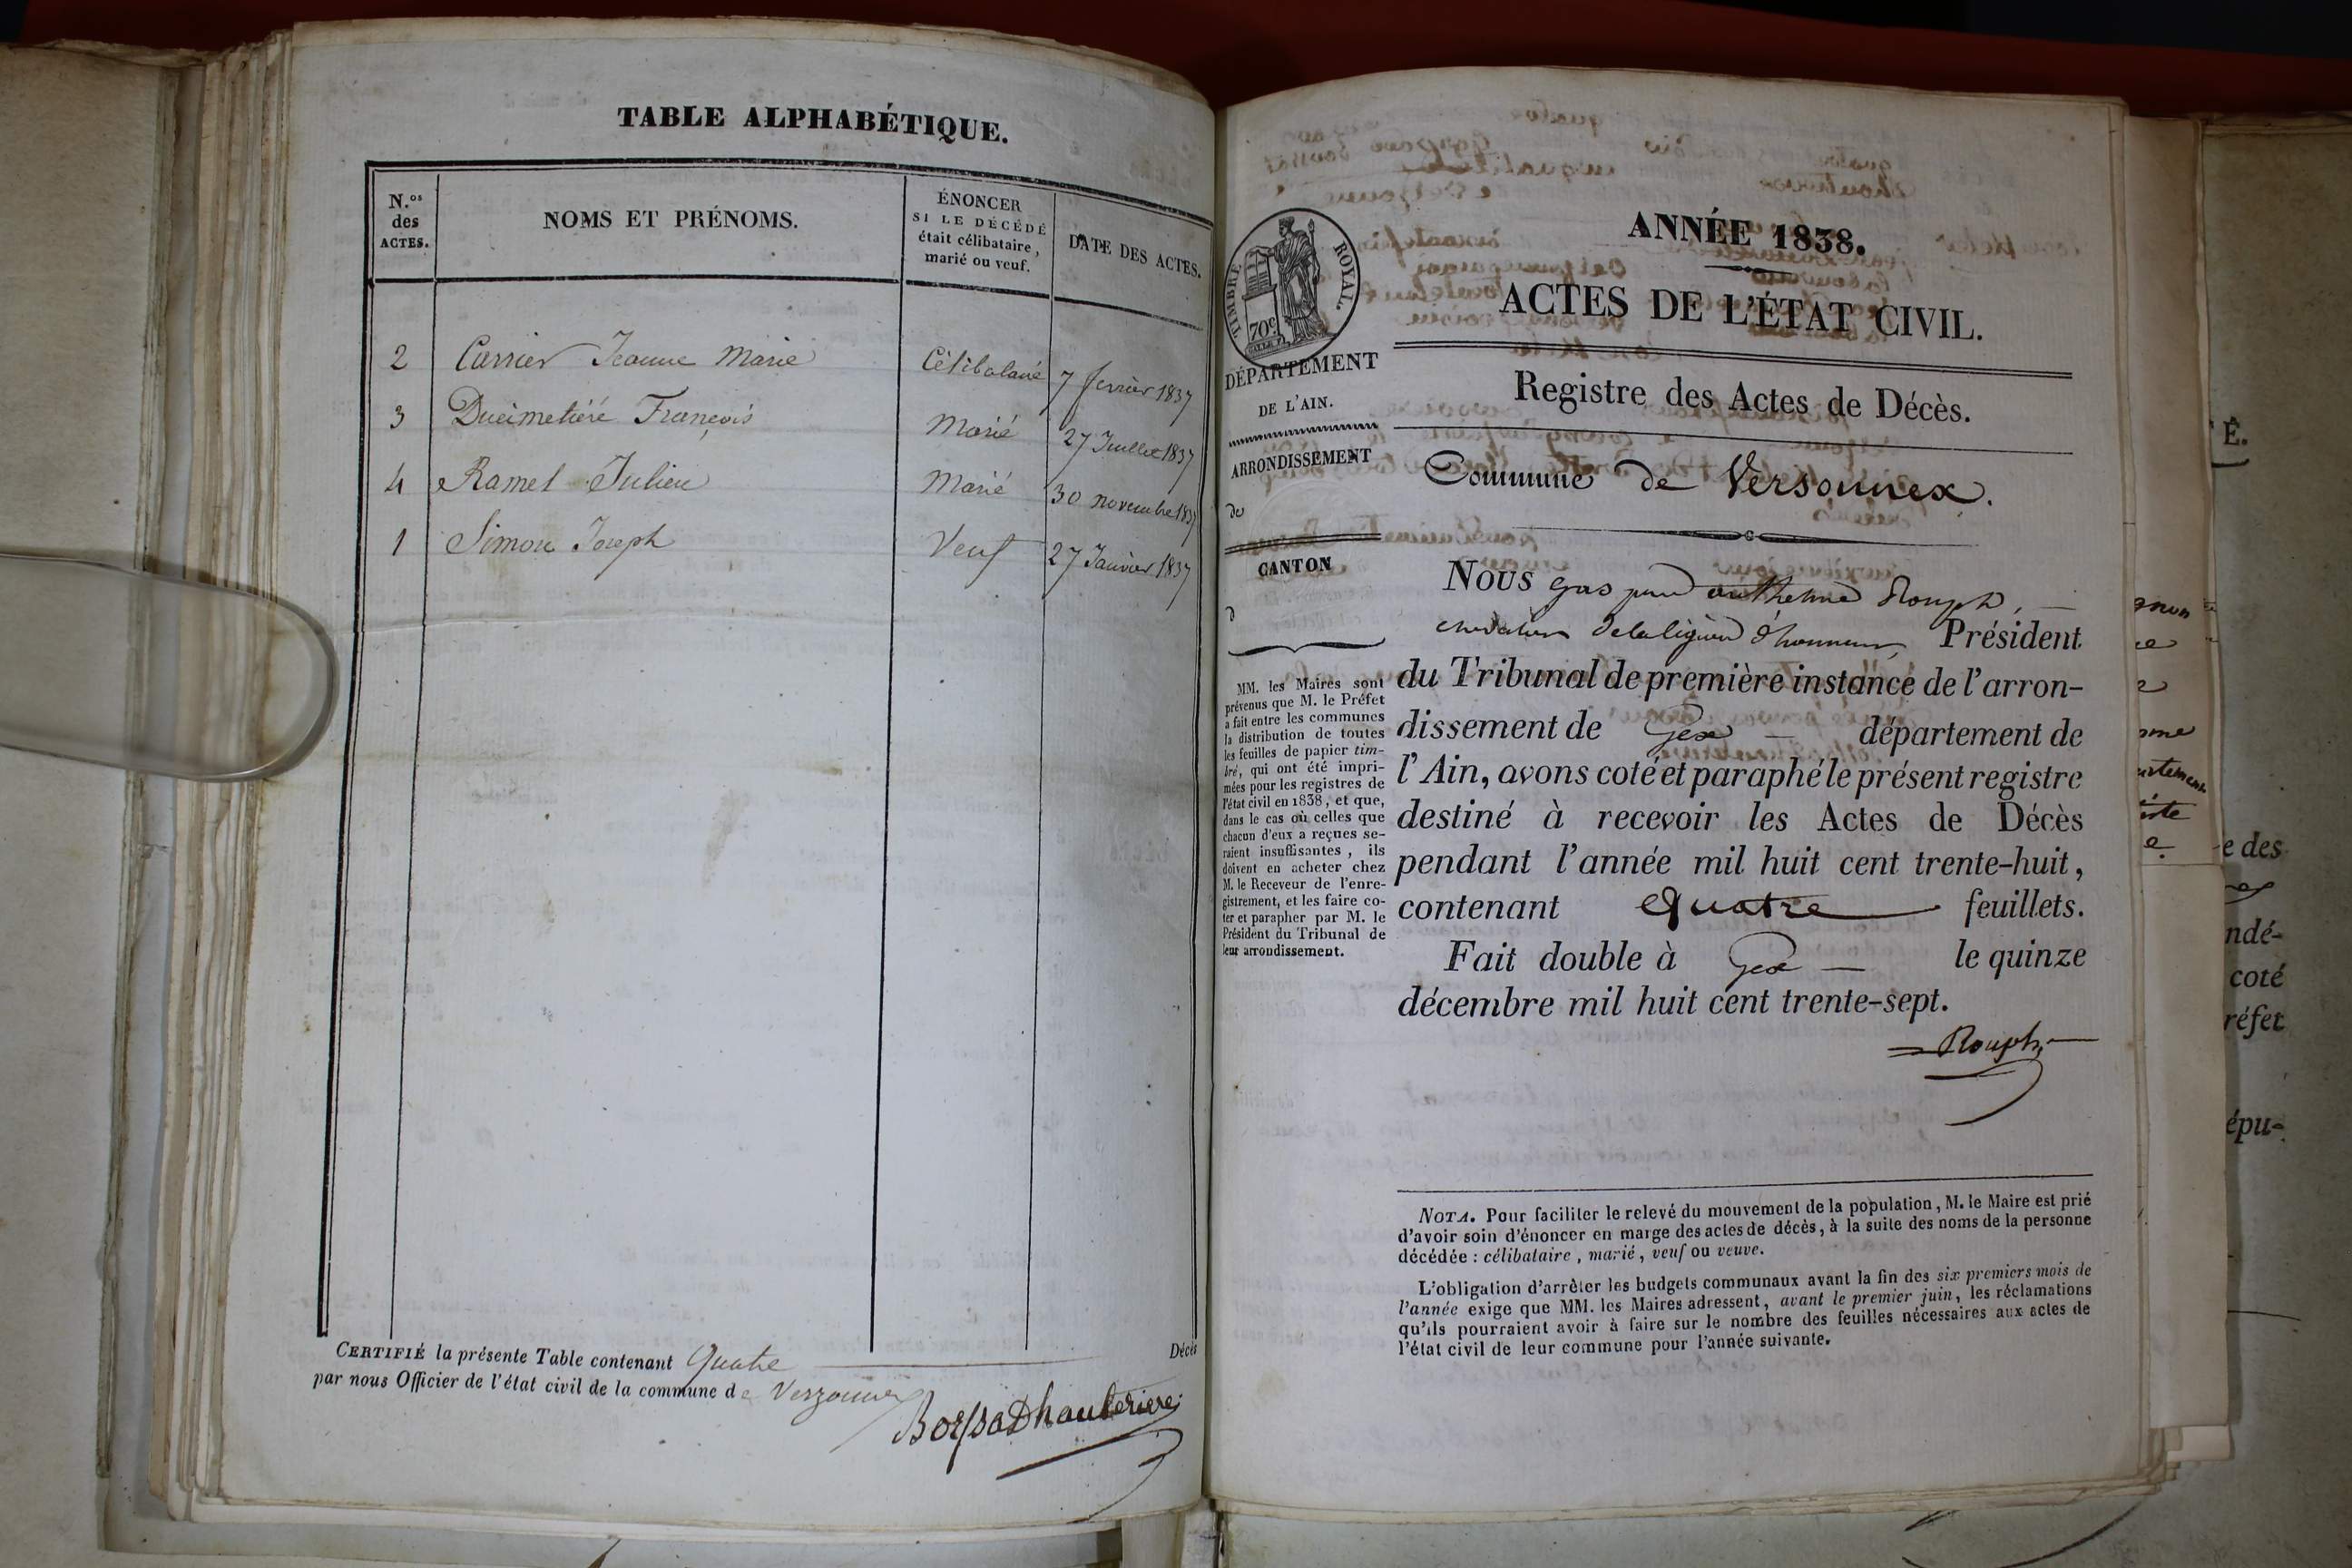 TABLE ALPHABÉTIQUE.
N.os des ACTES.
NOMS ET PRÉNOMS.
ÉNONCER
SI LE DÉCÉDÉ
était célibataire,
marié ou veuf.
DATE DES ACTES.
2 Carrier Jeanne Marie Célibataire 7 fevrier 1837
3 Ducimetière François Marié 27 Juillet 1837
4 Ramel Julien Marié 30 novembre 1837
1 Simon Joseph Veuf 27 Janvier 1837
CERTIFIÉ la présente Table contenant Quatre Décès
par nous Officier de l'état civil de la commune de Verzonnex
ANNÉE 1838.
ACTES DE L'ÉTAT CIVIL.
TIMBRE ROYAL.
70c
DÉPARTEMENT
DE L'AIN.
ARRONDISSEMENT
de
CANTON
d
MM. les Maires sont
prévenus que M. le Préfet
a fait entre les communes
la distribution de toutes
les feuilles de papier tim-
bré, qui ont été impri-
mées pour les registres de
l'état civil en 1838, et que,
dans le cas où celles que
chacun d'eux a reçues se-
raient insuffisantes, ils
doivent en acheter chez
M. le Receveur de l'enre-
gistrement, et les faire co-
ter et parapher par M. le
Président du Tribunal de
leur arrondissement.
Registre des Actes de Décès.
Commune de Versonnex.
Nous Gaspard Rouph,
chevalier de la légion d'honneur, Président
du Tribunal de première instance de l'arron-
dissement de Gex département de
l'Ain, avons coté et paraphé le présent registre
destiné à recevoir les Actes de Décès
pendant l'année mil huit cent trente-huit,
contenant quatre feuillets.
Fait double à Gex le quinze
décembre mil huit cent trente-sept.
Rouph
NOTA. Pour faciliter le relevé du mouvement de la population, M. le Maire est prié
d'avoir soin d'énoncer en marge des actes de décès, à la suite des noms de la personne
décédée : célibataire, marié, veuf ou veuve.
L'obligation d'arrêter les budgets communaux avant la fin des six premiers mois de
l'année exige que MM. les Maires adressent, avant le premier juin, les réclamations
qu'ils pourraient avoir à faire sur le nombre des feuilles nécessaires aux actes de
l'état civil de leur commune pour l'année suivante.
É.
e des
ndé-
coté
réfet
épu-